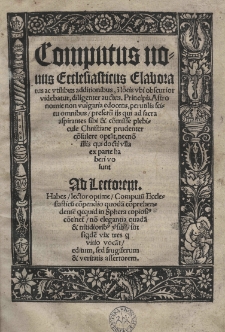 Computus no-
uus Ecclesiasticus Elabora
tus ac vtilibus additionibus, in locis vbi obscurior
videbatur, diligenter auctus. Principia Astro
nomie non vulgaria edocens, per utilis
omnibus, presertim iis qui ad sacra
aspirantes sibi & communi plebe-
cule Christiane prudenter
consulere optant, necnon
illis qui docti vlla
ex parte ha
beri vo
lunt
Ad Lectorem.
Habes, lector optime, Computi Eccle-
siastici compendio quodam comprehen-
dens quicquid in Sphera copiose
continet, non elegantia quadam
vix tres q
vitio vocat,
editum, sed frugiferum
& veritatis assertorem.